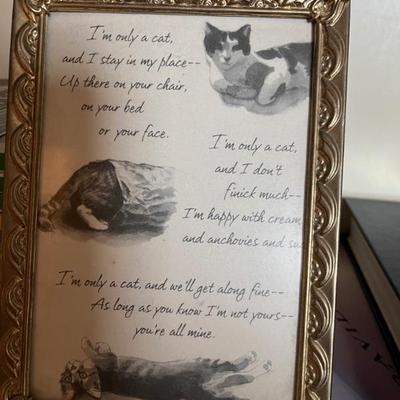 I'm only a cat,
and I stay in my place--
Up there on your chair,
on your bed
or your face.
I'm only a cat,
and I don't
finick much--
I'm happy with cream
and anchovies and
I'm only a cat, and we'll get along fine--
As long as you know I'm not yours--
you're all mine.